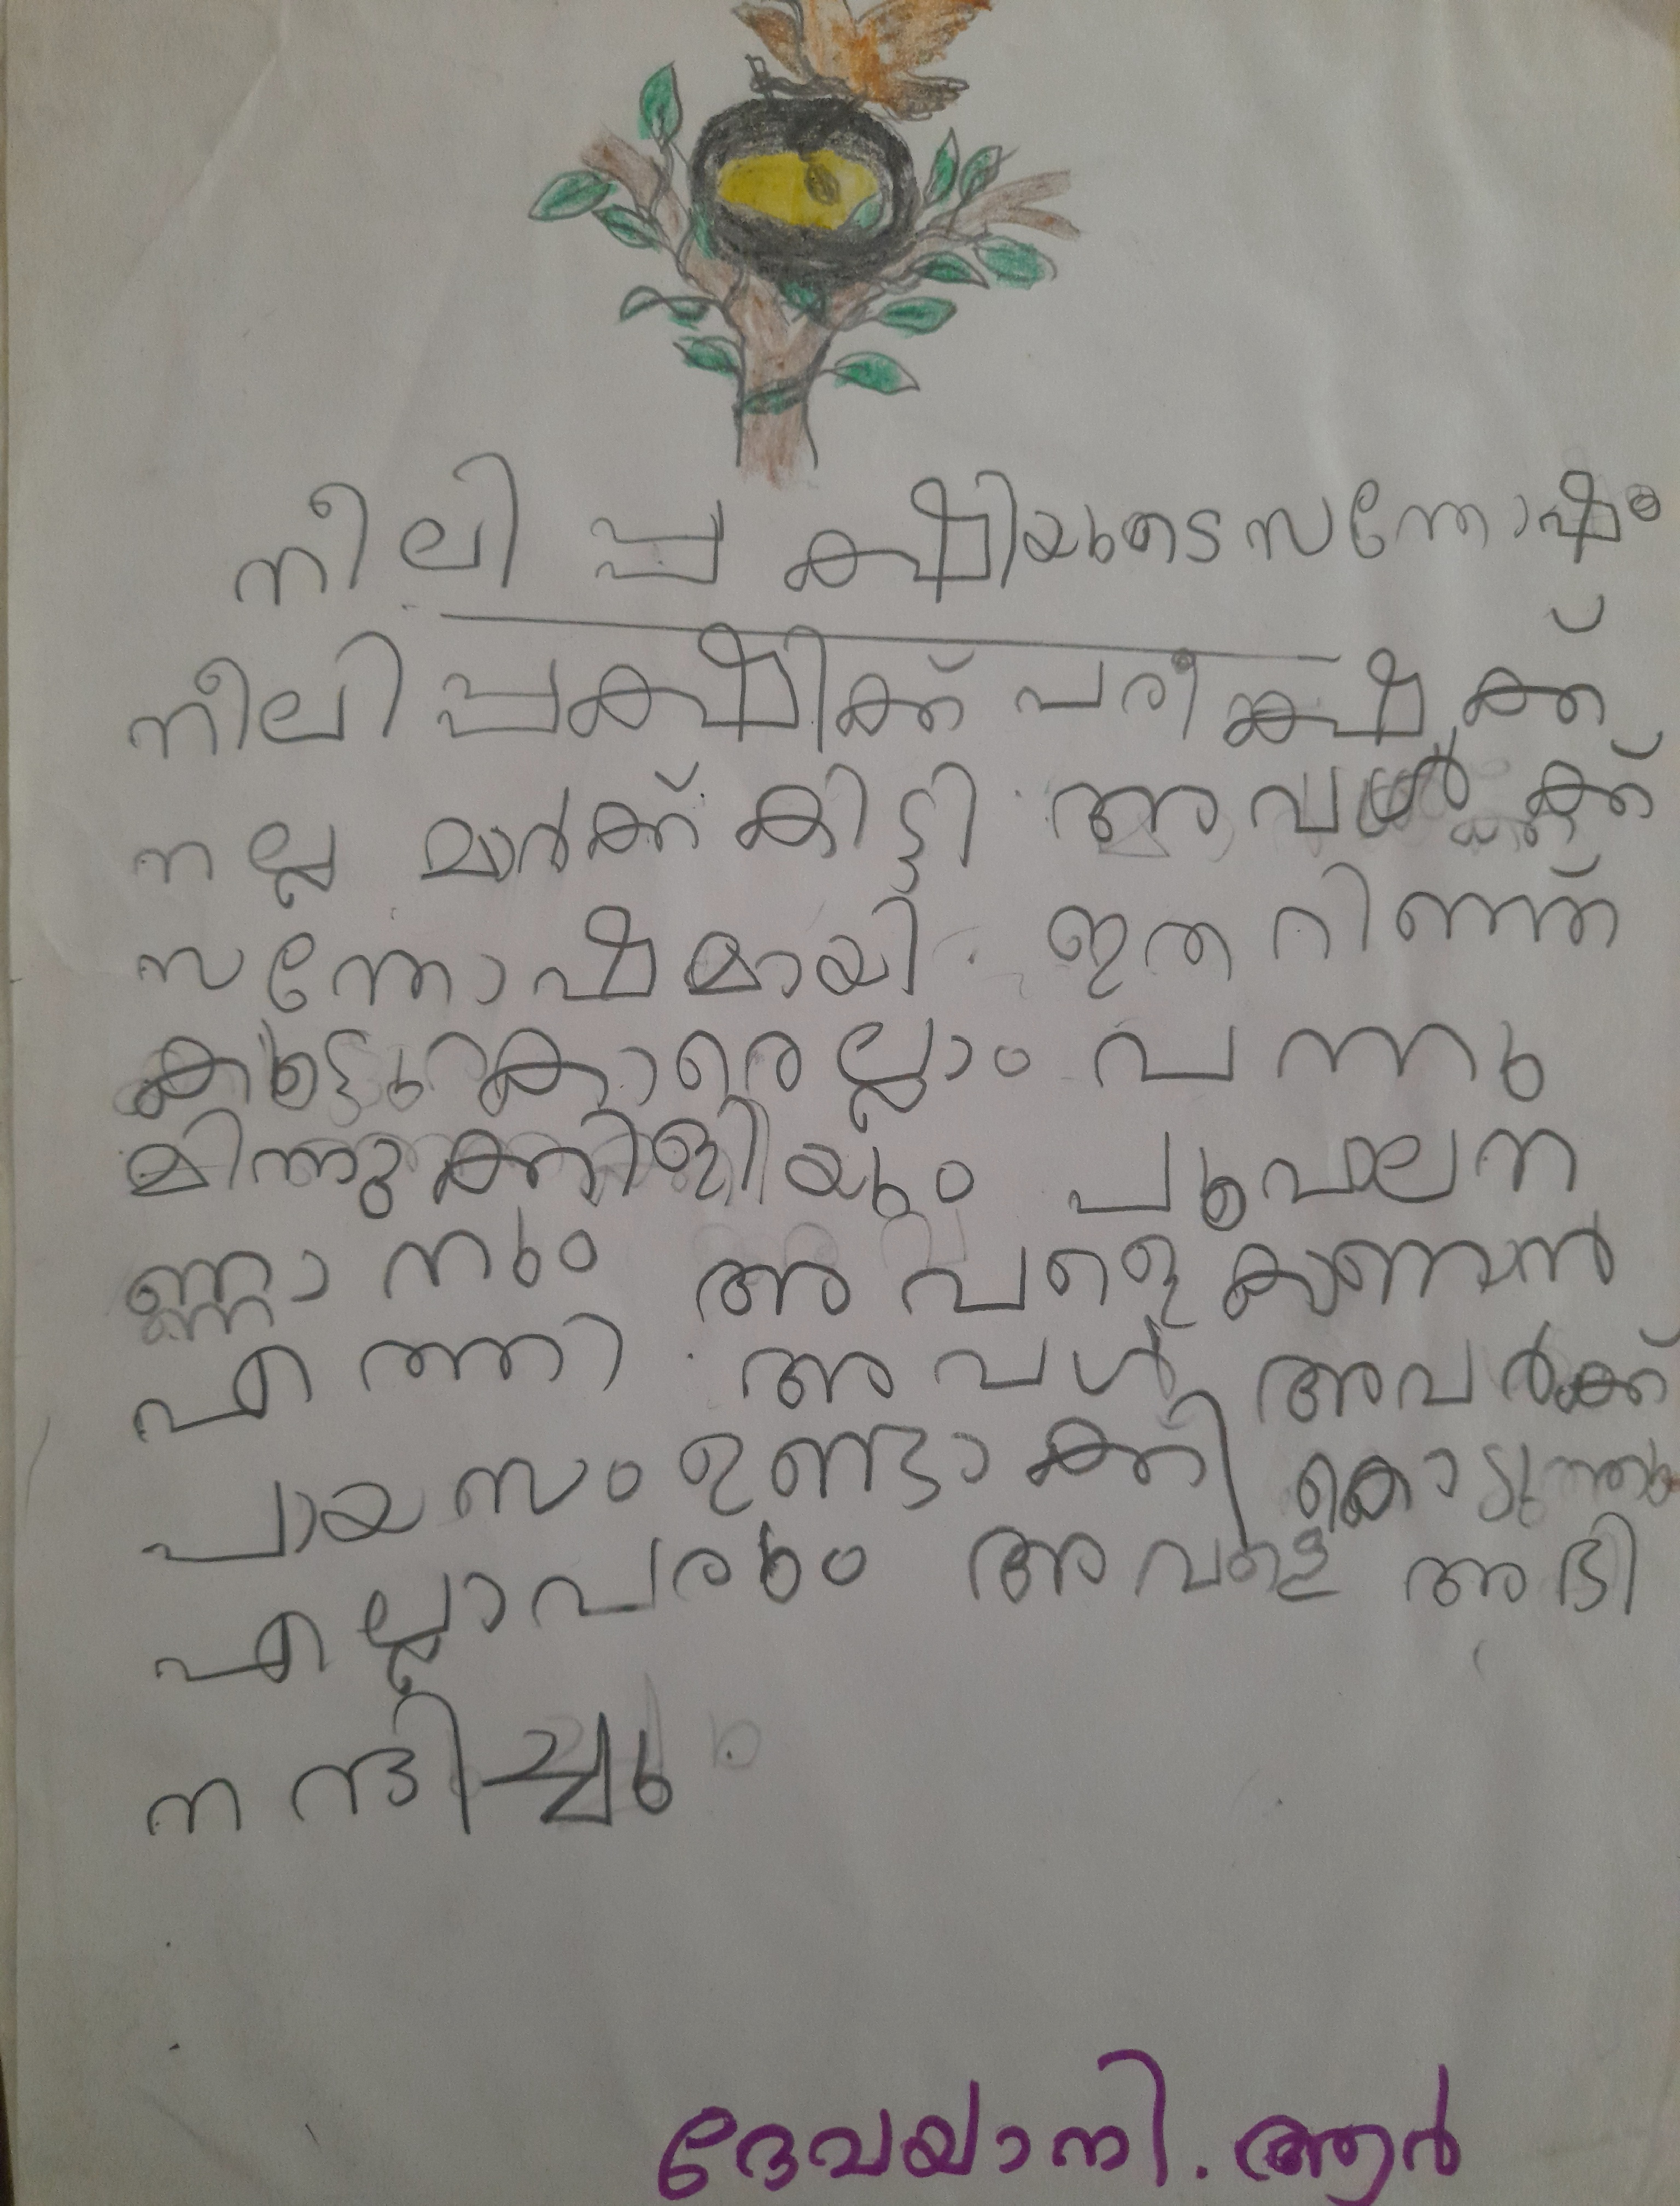 നീലി പ്പക്ഷിയുടെ സന്തോഷം
നീലി പ്പക്ഷിക്ക് പരീക്ഷക്ക്
നല്ല മാർക്ക് കിട്ടി. അവൾക്ക്
സന്തോഷമായി. ഇതറിഞ്ഞ്
കൂട്ടുകാരെല്ലാം വന്നു
മിന്നുക്കിളിയും പൂവാലന
ണ്ണാനും അവളെ കാണാൻ
എത്തി. അവൾ അവർക്ക്
പായസം ഉണ്ടാക്കി കൊടുത്തു
എല്ലാവരും അവളെ അഭി
നന്ദിച്ചു
ദേവയാനി. ആർ